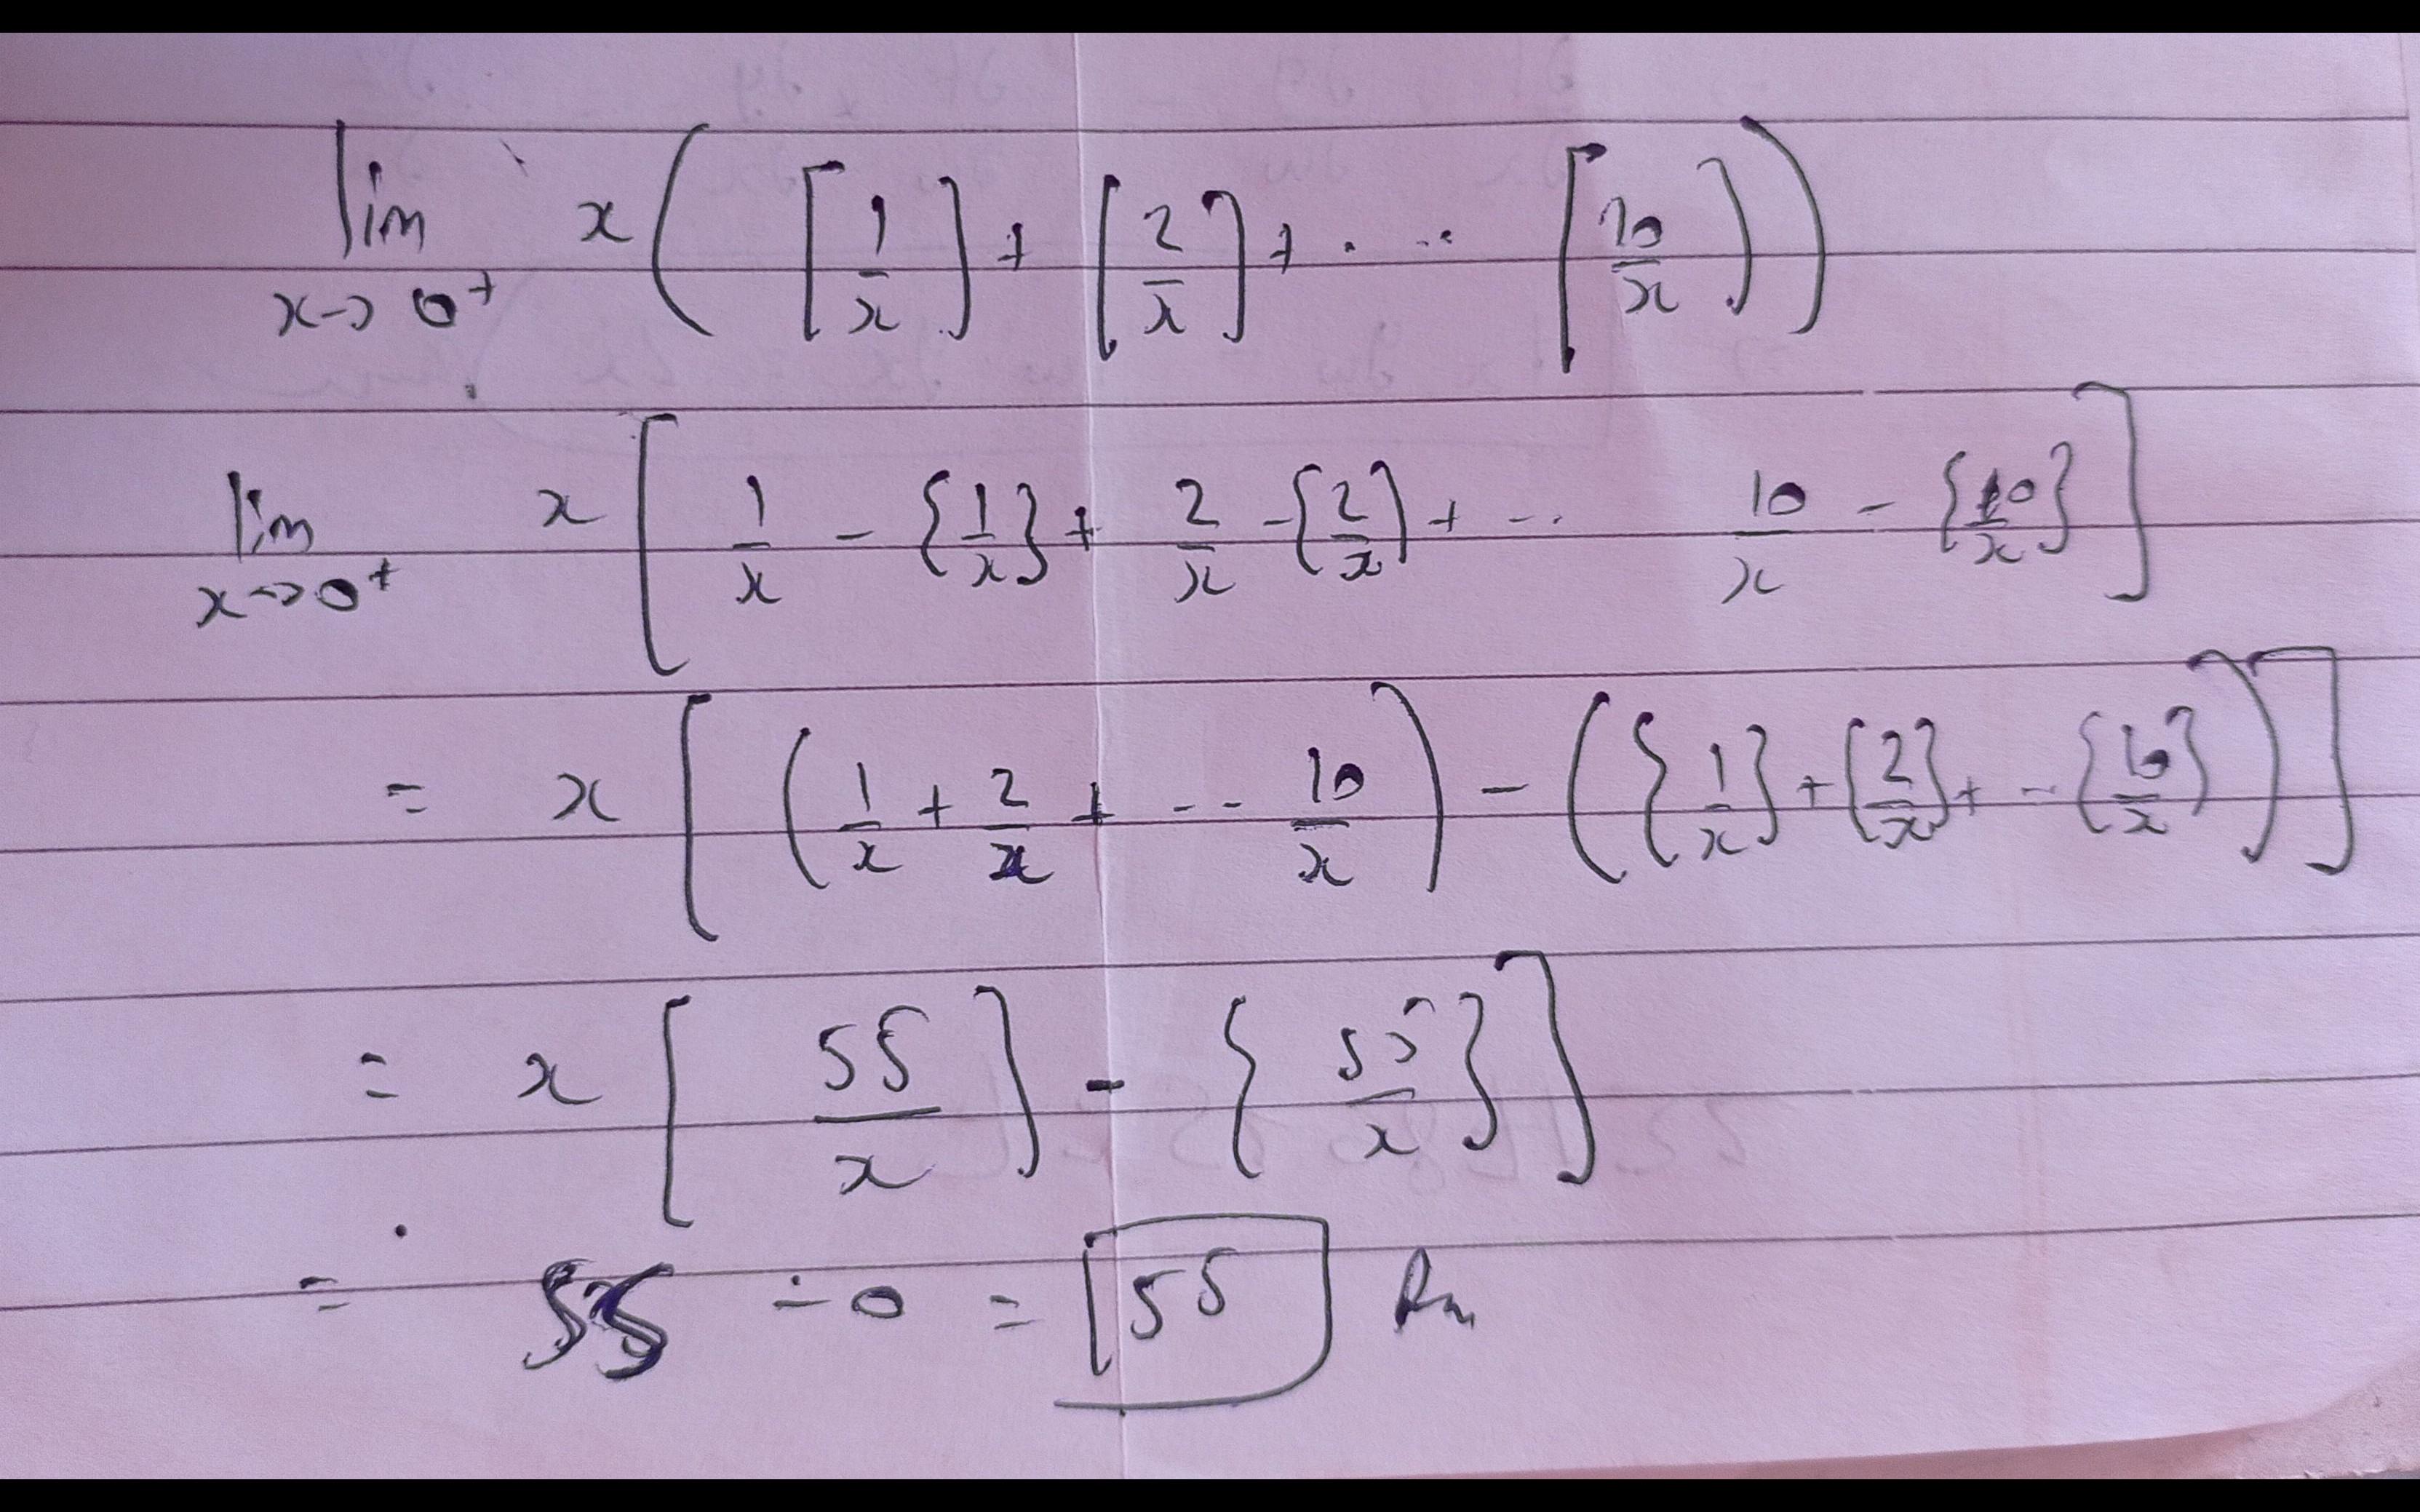 lim x→0⁺ x( [1/x] + [2/x] + .... [10/x] )
lim x→0⁺ x[ 1/x - {1/x} + 2/x - {2/x} + ... 10/x - {10/x} ]
= x[ (1/x + 2/x + ---- 10/x) - ({1/x} + {2/x} + -- {10/x}) ]
= x[ 55/x ] - {55/x} ]
= 55 - 0 = 55